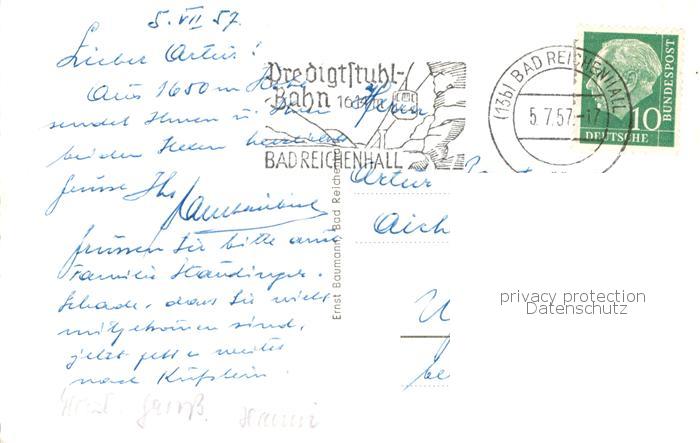 5. VII 57.
Lieber Artur!
Aus 1650 m Höhe
sendet Ihnen u. Ihren
beiden Hexen herzliche
Grüsse Ihr
Grüssen Sie bitte auch
Familie Staudinger.
Schade, dass Sie nicht
mitgekommen sind,
jetzt geht's weiter
nach Kufstein.
Predigtstuhl-
Bahn 1614 m
BAD REICHENHALL
(13b) BAD REICHENHALL
5.7.57.-17
10
DEUTSCHE
BUNDESPOST
Ernst Baumann, Bad Reichen
Herrn
Artur
Aich
U
be
privacy protection
Datenschutz